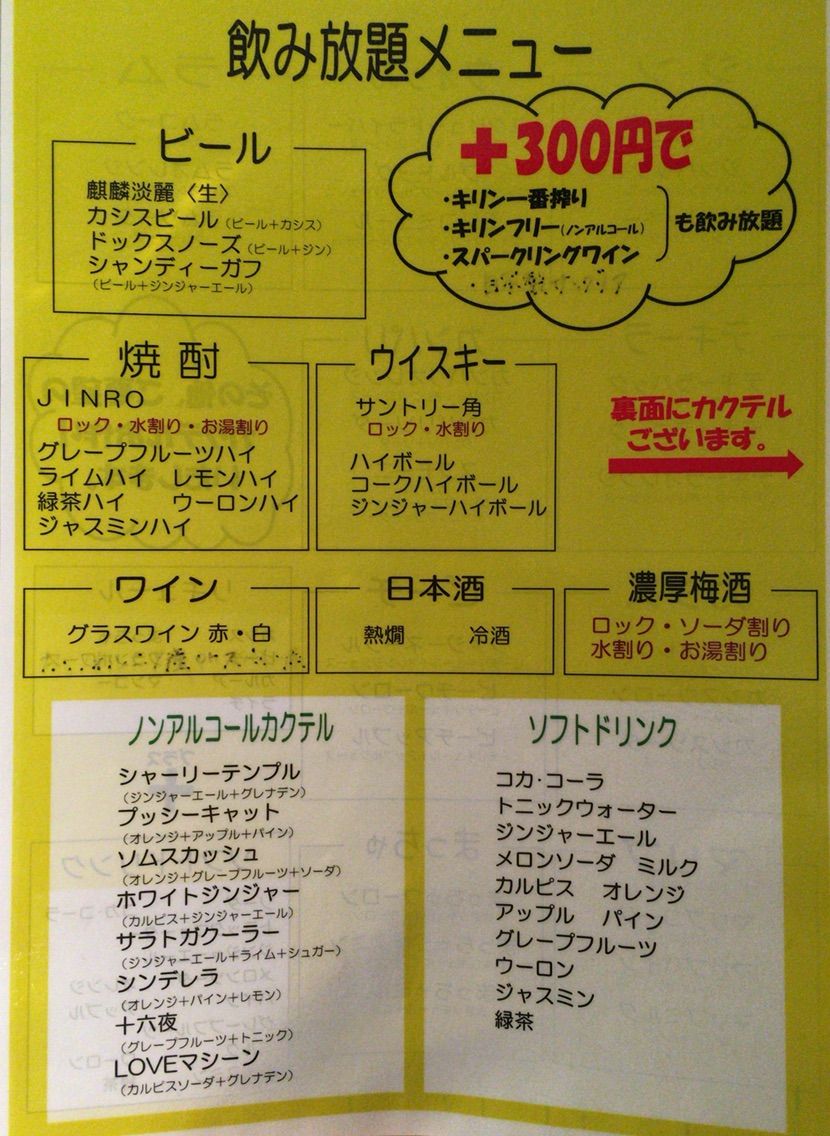 飲み放題メニュー
ビール
麒麟淡麗〈生〉
カシスビール（ビール＋カシス）
ドックスノーズ（ビール＋ジン）
シャンディーガフ
（ビール＋ジンジャーエール）
＋300円で
・キリン一番搾り
・キリンフリー（ノンアルコール）
・スパークリングワイン
も飲み放題
焼酎
ＪＩＮＲＯ
ロック・水割り・お湯割り
グレープフルーツハイ
ライムハイ レモンハイ
緑茶ハイ ウーロンハイ
ジャスミンハイ
ウイスキー
サントリー角
ロック・水割り
ハイボール
コークハイボール
ジンジャーハイボール
裏面にカクテル
ございます。
ワイン
グラスワイン 赤・白
日本酒
熱燗 冷酒
濃厚梅酒
ロック・ソーダ割り
水割り・お湯割り
ノンアルコールカクテル
シャーリーテンプル
（ジンジャーエール＋グレナデン）
プッシーキャット
（オレンジ＋アップル＋パイン）
ソムスカッシュ
（オレンジ＋グレープフルーツ＋ソーダ）
ホワイトジンジャー
（カルピス＋ジンジャーエール）
サラトガクーラー
（ジンジャーエール＋ライム＋シュガー）
シンデレラ
（オレンジ＋パイン＋レモン）
十六夜
（グレープフルーツ＋トニック）
LOVEマシーン
（カルピスソーダ＋グレナデン）
ソフトドリンク
コカ・コーラ
トニックウォーター
ジンジャーエール
メロンソーダ ミルク
カルピス オレンジ
アップル パイン
グレープフルーツ
ウーロン
ジャスミン
緑茶